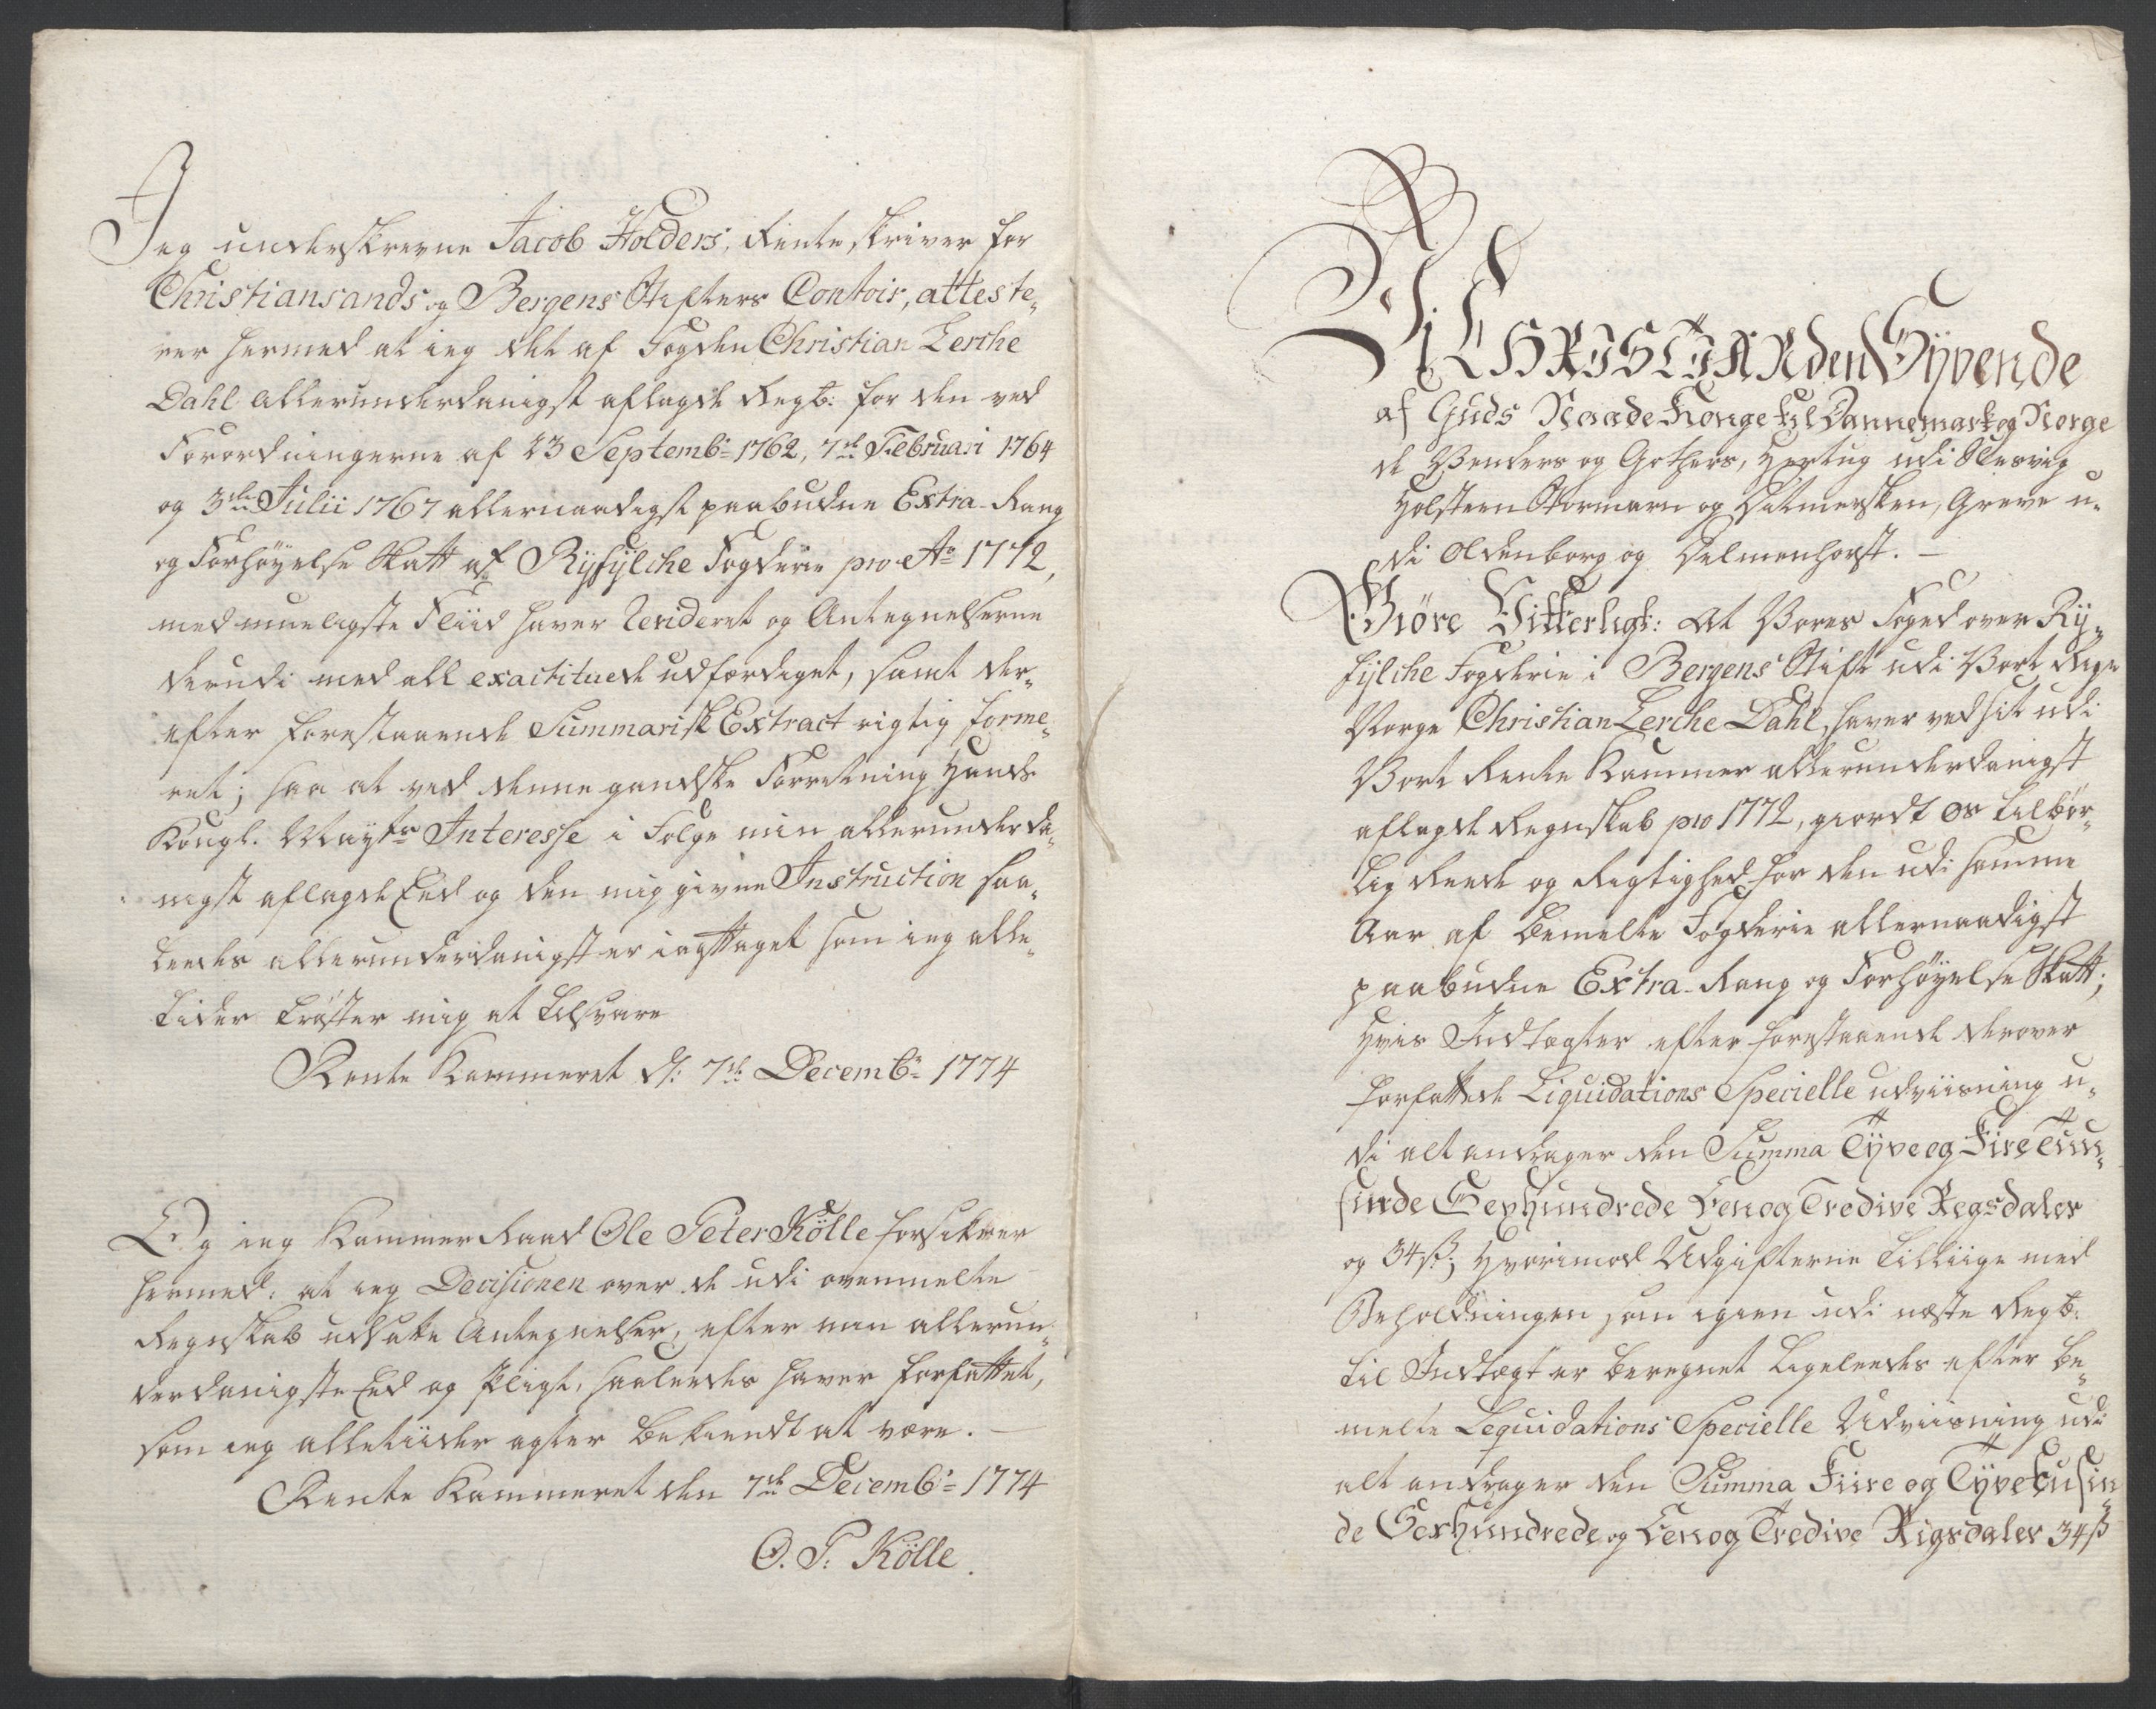 Jeg underskrevne Jacob Holders, Renteskriver for
Christiansands og Bergens Stifters Contoir, atteste,,
rer hermed at ieg det af Fogden Christian Lerche
Dahl allerunderdanigst aflagde Regsk: for den ved
Forordningerne af 23 Septembr 1762, 7de Februari 1764
og 3die Julii 1767 allernaadigst paabudne Extra- Rang
og Forhøyelse Skatt af Ryfylche Fogderie pro Ao 1772,
med mueligste Fliid haver revideret og Antegnelserne
derudi med all exactituede udfærdiget, samt der,,
efter forestaaende Summarisk Extract rigtig forme,,
ret; saa at ved denne gandske Forretning Hands
Kongl. Mayts Interesse i Følge min allerunderda,,
nigst aflagde Eed og den mig givne Instruction saa,,
leedes allerunderdanigst er iagttaget som ieg alle,,
tider trøster mig at tilsvare
Rente Kammeret d: 7de Decembr 1774
Og ieg Kammer Raad Ole Peter Kölle forsikrer
hermed: at ieg Decisionen over de udi ovenmelte
Regnskab udsatte Antegnelser, efter min allerun,,
derdanigste Eed og Pligt, saaledes haver forfattet,
som ieg alletiider agter bekiendt at være. —
Rente Kammeret den 7de Decembr 1774
O. P. Kölle.
Vi CHRISTIAN den Syvende
af Guds Naade Konge til Dannemark og Norge
de Venders og Gothers, Hertug udi Slesvig
Holsteen Stormarn og Ditmersken, Greve u,,
di Oldenborg og Delmenhorst. —
Giøre Vitterligt: At Vores Foged over Ry,,
fylche Fogderie i Bergens Stift udi Vort Rige
Norge Christian Lerche Dahl, haver ved sit udi
Vort Rente Kammer allerunderdanigst
aflagde Regnskab pro 1772, giordt os tilbør,,
lig Reede og Rigtighed for den udi samme
Aar af bemelte Fogderie allernaadigst
paabudne Extra- Rang og Forhøyelse Skatt;
Hvis Indtægter efter forestaaende derover
forfattede Liquidations Specielle udviisning u,,
di alt andrager den Summa Tyve og Fire Tuu,,
sinde Sexhundrede Een og Tredive Regsdaler
og 34 ß; Hvorimod Udgifterne tilliige med
Beholdningen som igien udi næste Regsk:
til Indtægt er beregnet ligeleedes efter be,,
melte Liquidations Specielle Udviisning udi
alt andrager den Summa Fiire og Tyve tusin,,
de Sexhundrede og Een og Tredive Rigsdaler 34 ß